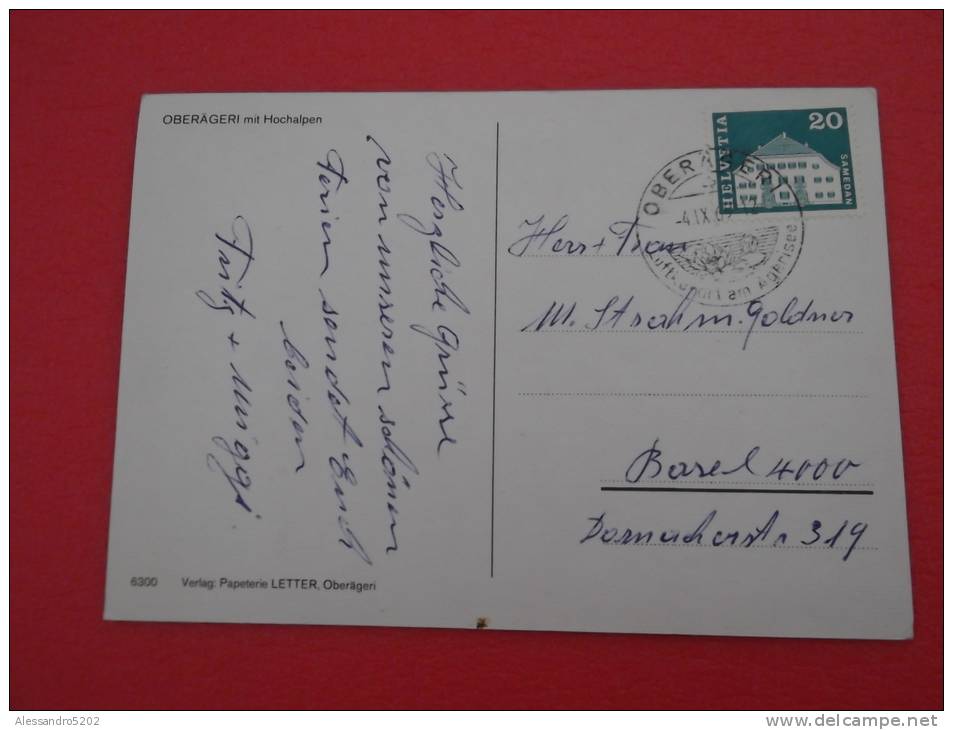 OBERÄGERI mit Hochalpen
Herzliche Grüsse
von unseren schönen
Ferien sendet Euch
beiden
Fritz + Miggi.
6300 Verlag: Papeterie LETTER, Oberägeri
HELVETIA
20
SAMEDAN
OBERÄGERI
-4.IX.
Luftkurort am Ägerisee
Herr + Frau
M. Strahm-Goldner
Basel 4000
Dornacherstr. 319
Alessandro5202
www.delcampe.net